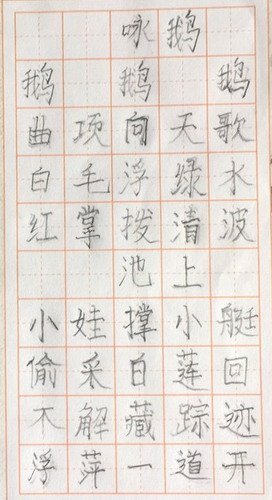 咏鹅
鹅 鹅 鹅
曲项向天歌
白毛浮绿水
红掌拨清波
池上
小娃撑小艇
偷采白莲回
不解藏踪迹
浮萍一道开